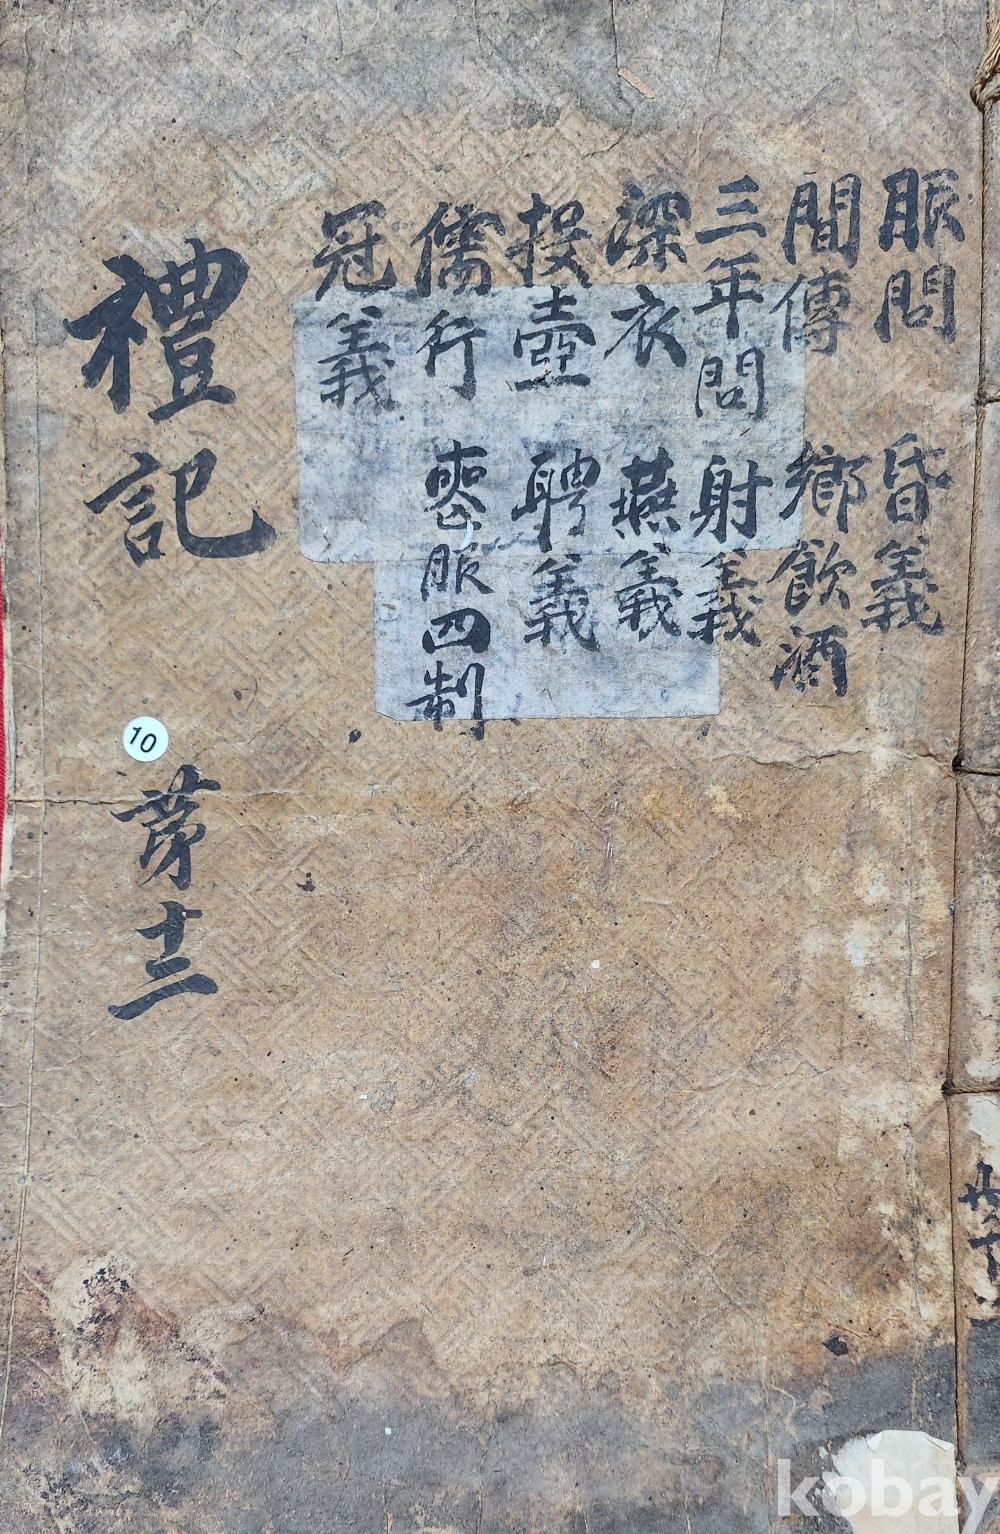 服問 昏義
間傳 鄉飮酒
三年問 射義
深衣 燕義
投壺 聘義
儒行 喪服四制
冠義
禮記 苐十二
10
kobay